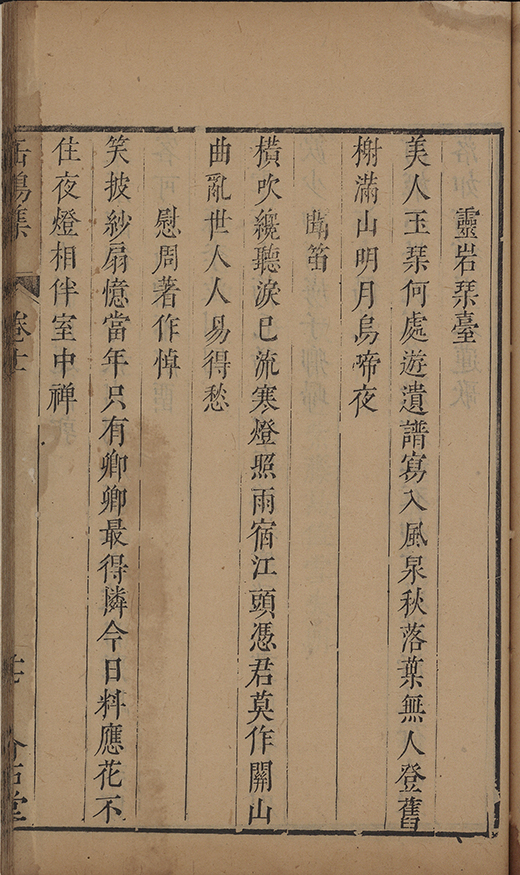 靈岩琹臺
美人玉琹何處遊遺譜寫入風泉秋落葉無人登舊
榭滿山明月烏啼夜
聞笛
橫吹纔聽淚已流寒燈照雨宿江頭憑君莫作關山
曲亂世人人易得愁
慰周著作悼
笑披紗扇憶當年只有卿卿最得憐今日料應花不
住夜燈相伴室中禅
缶鳴集
卷十